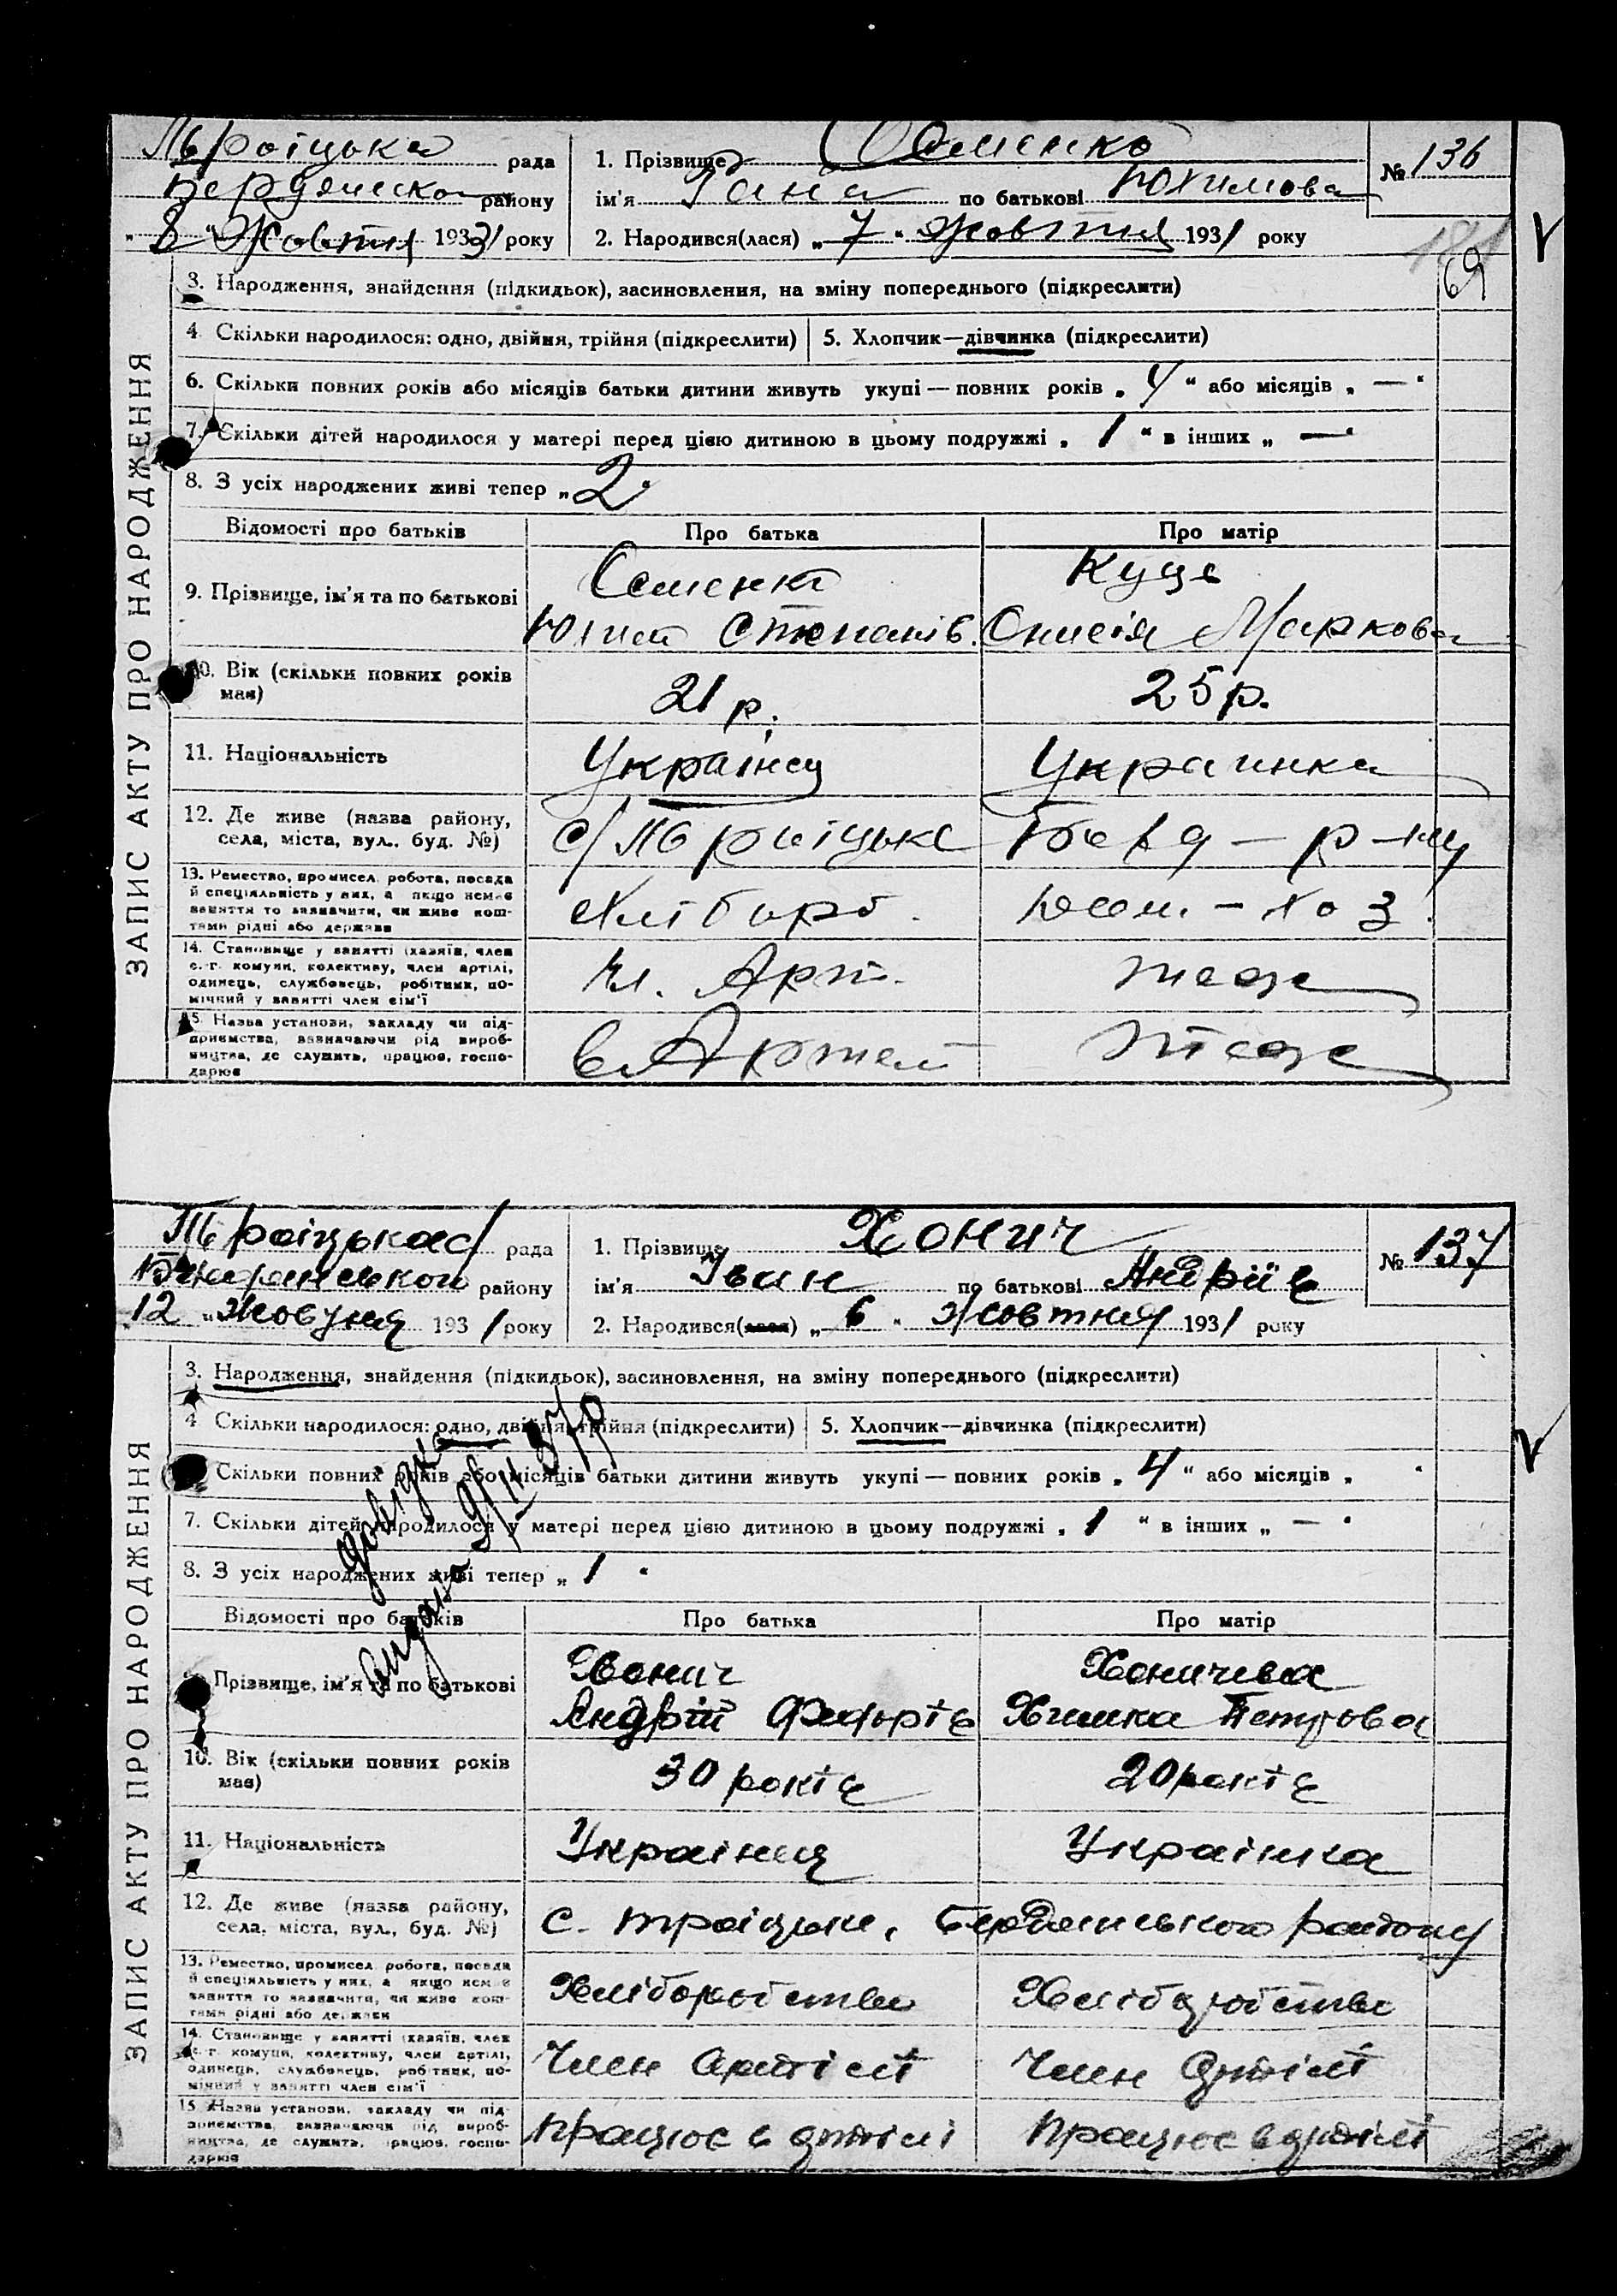 Троіцька рада
району
" 8 " Жовтня 1931 року
1. Прізвище Семенко
ім'я Гана по батькові Юхимова
2. Народився(лася) „ 7 " Жовтня 1931 року
№ 136
69
ЗАПИС АКТУ ПРО НАРОДЖЕННЯ
3. Народження, знайдення (підкидьок), засиновлення, на зміну попереднього (підкреслити)
4 Скільки народилося: одно, двійня, трійня (підкреслити) 5. Хлопчик—дівчинка (підкреслити)
6. Скільки повних років або місяців батьки дитини живуть укупі — повних років „ 4 " або місяців „ — "
7. Скільки дітей народилося у матері перед цією дитиною в цьому подружжі „ 1 " в інших „ — "
8. З усіх народжених живі тепер „ 2 "
Відомості про батьків Про батька Про матір
9. Прізвище, ім'я та по батькові
Семенко Куце
Степанів. Онисія Маркова
10. Вік (скільки повних років має)
21 р. 25 р.
11. Національність Українец Украинка
12. Де живе (назва району, села, міста, вул., буд. №)
с/Троіцьке Берд — р-ну
13. Ремество, промисел, робота, посада й спеціяльність у них, а якщо немає заняття то зазначити, чи живе коштами рідні або держави
Хлібороб. Дом. - хоз.
14. Становище у занятті (хазяїн, член с.-г. комуни, колективу, член артілі, одинець, службовець, робітник, помічний у занятті член сім'ї
Чл. Арт. тоже
15. Назва установи, закладу чи підприємства, зазначаючи рід виробництва, де служить, працює, господарює
в Артели тоже
Троіцька с/рада
Бердянського району
" 12 " Жовтня 1931 року
1. Прізвище Хонич
ім'я Іван по батькові Андріїв
2. Народився(лася) „ 6 " Жовтня 1931 року
№ 137
ЗАПИС АКТУ ПРО НАРОДЖЕННЯ
3. Народження, знайдення (підкидьок), засиновлення, на зміну попереднього (підкреслити)
4 Скільки народилося: одно, двійня, трійня (підкреслити) 5. Хлопчик—дівчинка (підкреслити)
Скільки повних років або місяців батьки дитини живуть укупі — повних років „ 4 " або місяців „ "
7. Скільки дітей народилося у матері перед цією дитиною в цьому подружжі „ 1 " в інших „ — "
8. З усіх народжених живі тепер „ 1 "
Відомості про батьків Про батька Про матір
Прізвище, ім'я та по батькові
Хонич Хоничева
Андрій Федорів Химка Петрова
10. Вік (скільки повних років має)
30 років 20 років
11. Національність Українец Українка
12. Де живе (назва району, села, міста, вул., буд. №)
с. Троіцьке, Бердянського району
13. Ремество, промисел, робота, посада й спеціяльність у них, а якщо немає заняття то зазначити, чи живе коштами рідні або держави
Хліборобство Хліборобство
14. Становище у занятті (хазяїн, член с.-г. комуни, колективу, член артілі, одинець, службовець, робітник, помічний у занятті член сім'ї
Член артілі Член артілі
15. Назва установи, закладу чи підприємства, зазначаючи рід виробництва, де служить, працює, господарює
Працює в артілі Працює в артілі